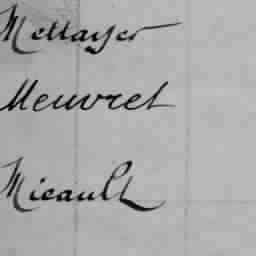 Mettayer
Meuvret
Micault